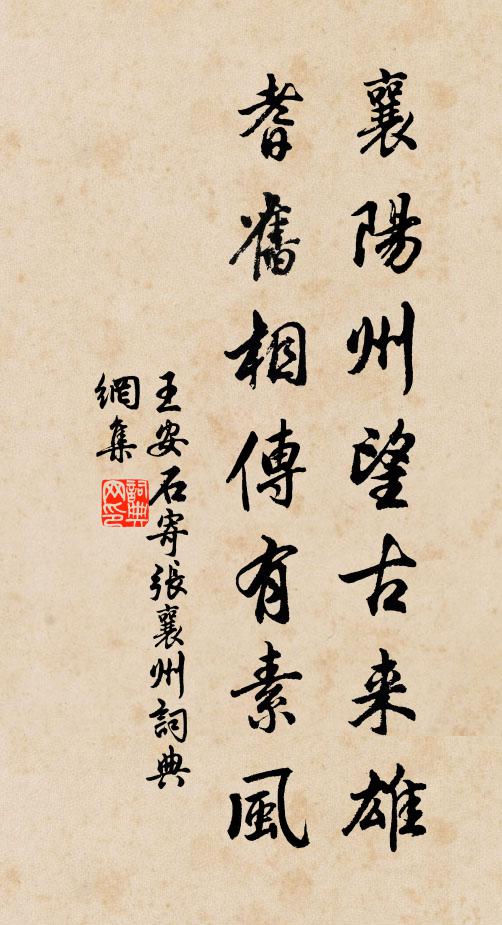 襄陽州望古来雄
耆舊相傳有素風
王安石寄張襄州詞典
網集
詞典
网印